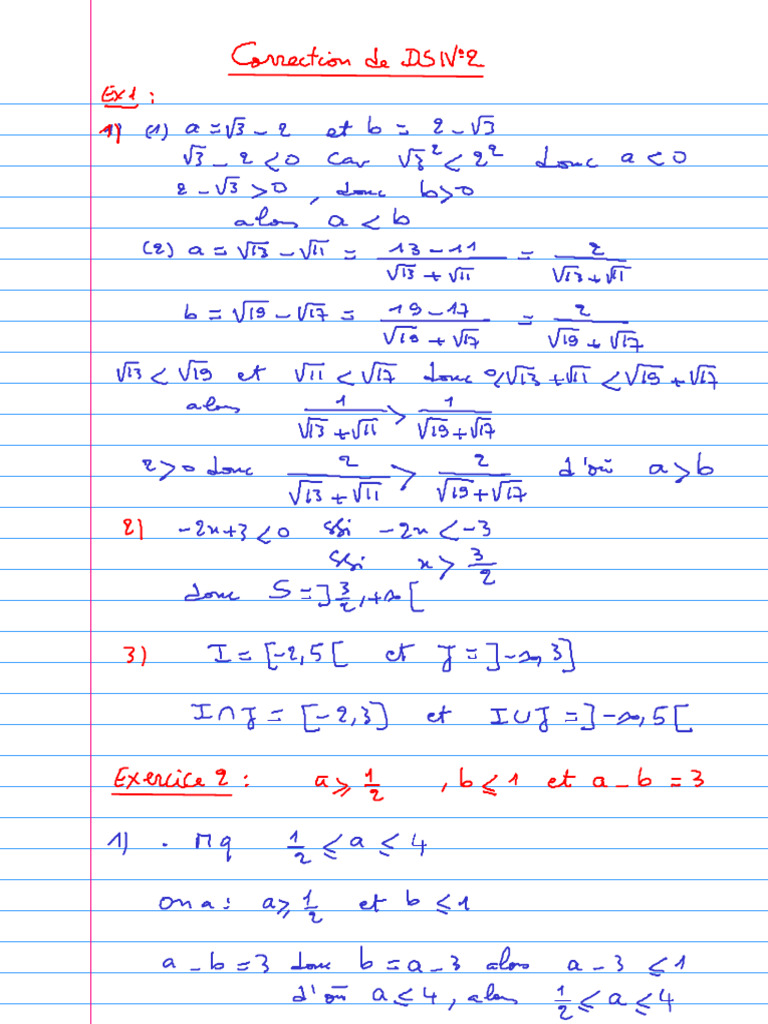 Correction de DS N°2
Ex1 :
1) (1) a = √3 - 2 et b = 2 - √3
√3 - 2 < 0 car √3² < 2² donc a < 0
2 - √3 > 0 , donc b > 0
alors a < b
(2) a = √13 - √11 = (13 - 11)/(√13 + √11) = 2/(√13 + √11)
b = √19 - √17 = (19 - 17)/(√19 + √17) = 2/(√19 + √17)
√13 < √19 et √11 < √17 donc 0 < √13 + √11 < √19 + √17
alors 1/(√13 + √11) > 1/(√19 + √17)
2 > 0 donc 2/(√13 + √11) > 2/(√19 + √17) d'où a > b
2) -2x + 3 < 0 ssi -2x < -3
ssi x > 3/2
donc S = ]3/2, +∞[
3) I = [-2, 5[ et J = ]-∞, 3]
I ∩ J = [-2, 3] et I ∪ J = ]-∞, 5[
Exercice 2 : a ⩾ 1/2 , b ⩽ 1 et a - b = 3
1) . Mq 1/2 ⩽ a ⩽ 4
on a : a ⩾ 1/2 et b ⩽ 1
a - b = 3 donc b = a - 3 alors a - 3 ⩽ 1
d'où a ⩽ 4 , alors 1/2 ⩽ a ⩽ 4